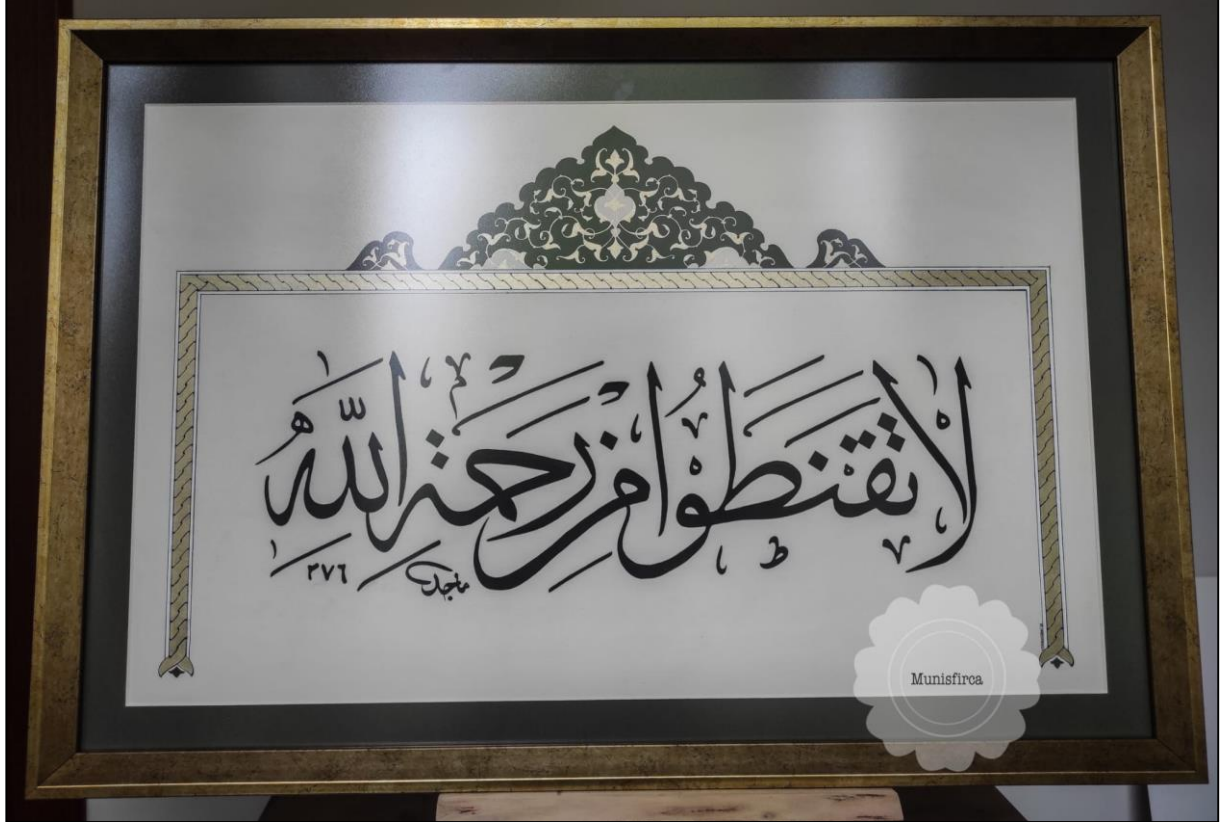 لَا تَقْنَطُوا مِنْ رَحْمَةِ اللَّهِ
ماجد
٣٧٦
Munisfirca